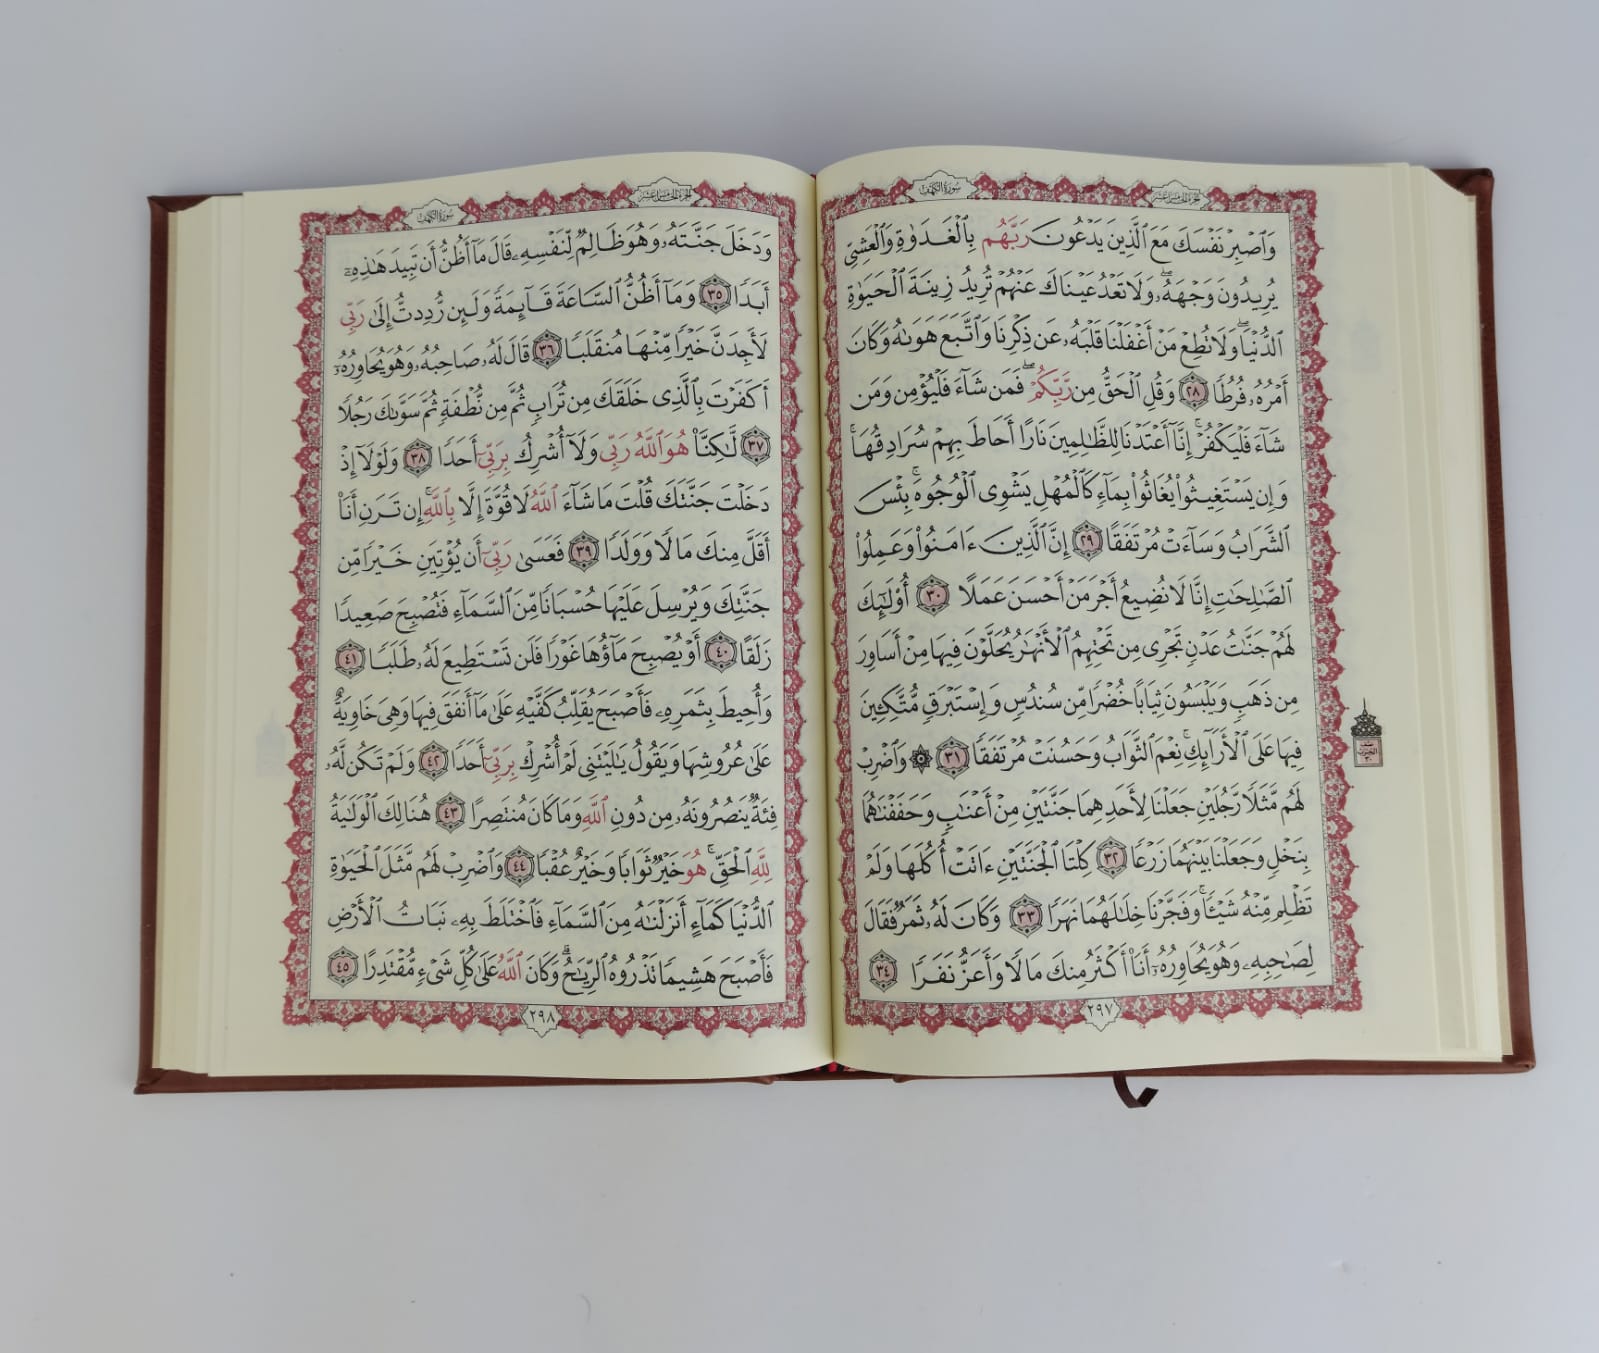 سورة الكهف
الجزء الخامس عشر
وَٱصۡبِرۡ نَفۡسَكَ مَعَ ٱلَّذِينَ يَدۡعُونَ رَبَّهُم بِٱلۡغَدَوٰةِ وَٱلۡعَشِيِّ
يُرِيدُونَ وَجۡهَهُۥۖ وَلَا تَعۡدُ عَيۡنَاكَ عَنۡهُمۡ تُرِيدُ زِينَةَ ٱلۡحَيَوٰةِ
ٱلدُّنۡيَاۖ وَلَا تُطِعۡ مَنۡ أَغۡفَلۡنَا قَلۡبَهُۥ عَن ذِكۡرِنَا وَٱتَّبَعَ هَوَىٰهُ وَكَانَ
أَمۡرُهُۥ فُرُطٗا ٢٨ وَقُلِ ٱلۡحَقُّ مِن رَّبِّكُمۡۖ فَمَن شَآءَ فَلۡيُؤۡمِن وَمَن
شَآءَ فَلۡيَكۡفُرۡۚ إِنَّآ أَعۡتَدۡنَا لِلظَّٰلِمِينَ نَارًا أَحَاطَ بِهِمۡ سُرَادِقُهَاۚ
وَإِن يَسۡتَغِيثُواْ يُغَاثُواْ بِمَآءٖ كَٱلۡمُهۡلِ يَشۡوِي ٱلۡوُجُوهَۚ بِئۡسَ
ٱلشَّرَابُ وَسَآءَتۡ مُرۡتَفَقًا ٢٩ إِنَّ ٱلَّذِينَ ءَامَنُواْ وَعَمِلُواْ
ٱلصَّٰلِحَٰتِ إِنَّا لَا نُضِيعُ أَجۡرَ مَنۡ أَحۡسَنَ عَمَلًا ٣٠ أُوْلَٰٓئِكَ
لَهُمۡ جَنَّٰتُ عَدۡنٖ تَجۡرِي مِن تَحۡتِهِمُ ٱلۡأَنۡهَٰرُ يُحَلَّوۡنَ فِيهَا مِنۡ أَسَاوِرَ
مِن ذَهَبٖ وَيَلۡبَسُونَ ثِيَابًا خُضۡرٗا مِّن سُندُسٖ وَإِسۡتَبۡرَقٖ مُّتَّكِـِٔينَ
فِيهَا عَلَى ٱلۡأَرَآئِكِۚ نِعۡمَ ٱلثَّوَابُ وَحَسُنَتۡ مُرۡتَفَقٗا ٣١ ۞ وَٱضۡرِبۡ
لَهُم مَّثَلٗا رَّجُلَيۡنِ جَعَلۡنَا لِأَحَدِهِمَا جَنَّتَيۡنِ مِنۡ أَعۡنَٰبٖ وَحَفَفۡنَٰهُمَا
بِنَخۡلٖ وَجَعَلۡنَا بَيۡنَهُمَا زَرۡعٗا ٣٢ كِلۡتَا ٱلۡجَنَّتَيۡنِ ءَاتَتۡ أُكُلَهَا وَلَمۡ
تَظۡلِم مِّنۡهُ شَيۡـٔٗاۚ وَفَجَّرۡنَا خِلَٰلَهُمَا نَهَرٗا ٣٣ وَكَانَ لَهُۥ ثَمَرٞ فَقَالَ
لِصَٰحِبِهِۦ وَهُوَ يُحَاوِرُهُۥٓ أَنَا۠ أَكۡثَرُ مِنكَ مَالٗا وَأَعَزُّ نَفَرٗا ٣٤
٢٩٧
سورة الكهف
الجزء الخامس عشر
وَدَخَلَ جَنَّتَهُۥ وَهُوَ ظَالِمٞ لِّنَفۡسِهِۦ قَالَ مَآ أَظُنُّ أَن تَبِيدَ هَٰذِهِۦٓ
أَبَدٗا ٣٥ وَمَآ أَظُنُّ ٱلسَّاعَةَ قَآئِمَةٗ وَلَئِن رُّدِدتُّ إِلَىٰ رَبِّي
لَأَجِدَنَّ خَيۡرٗا مِّنۡهَا مُنقَلَبٗا ٣٦ قَالَ لَهُۥ صَاحِبُهُۥ وَهُوَ يُحَاوِرُهُۥٓ
أَكَفَرۡتَ بِٱلَّذِي خَلَقَكَ مِن تُرَابٖ ثُمَّ مِن نُّطۡفَةٖ ثُمَّ سَوَّىٰكَ رَجُلٗا
٣٧ لَّٰكِنَّا۠ هُوَ ٱللَّهُ رَبِّي وَلَآ أُشۡرِكُ بِرَبِّيٓ أَحَدٗا ٣٨ وَلَوۡلَآ إِذۡ
دَخَلۡتَ جَنَّتَكَ قُلۡتَ مَا شَآءَ ٱللَّهُ لَا قُوَّةَ إِلَّا بِٱللَّهِۚ إِن تَرَنِ أَنَا۠
أَقَلَّ مِنكَ مَالٗا وَوَلَدٗا ٣٩ فَعَسَىٰ رَبِّيٓ أَن يُؤۡتِيَنِ خَيۡرٗا مِّن
جَنَّتِكَ وَيُرۡسِلَ عَلَيۡهَا حُسۡبَانٗا مِّنَ ٱلسَّمَآءِ فَتُصۡبِحَ صَعِيدٗا
زَلَقًا ٤٠ أَوۡ يُصۡبِحَ مَآؤُهَا غَوۡرٗا فَلَن تَسۡتَطِيعَ لَهُۥ طَلَبٗا ٤١
وَأُحِيطَ بِثَمَرِهِۦ فَأَصۡبَحَ يُقَلِّبُ كَفَّيۡهِ عَلَىٰ مَآ أَنفَقَ فِيهَا وَهِيَ خَاوِيَةٌ
عَلَىٰ عُرُوشِهَا وَيَقُولُ يَٰلَيۡتَنِي لَمۡ أُشۡرِكۡ بِرَبِّيٓ أَحَدٗا ٤٢ وَلَمۡ تَكُن لَّهُۥ
فِئَةٞ يَنصُرُونَهُۥ مِن دُونِ ٱللَّهِ وَمَا كَانَ مُنتَصِرًا ٤٣ هُنَالِكَ ٱلۡوَلَٰيَةُ
لِلَّهِ ٱلۡحَقِّۚ هُوَ خَيۡرٞ ثَوَابٗا وَخَيۡرٌ عُقۡبٗا ٤٤ وَٱضۡرِبۡ لَهُم مَّثَلَ ٱلۡحَيَوٰةِ
ٱلدُّنۡيَا كَمَآءٍ أَنزَلۡنَٰهُ مِنَ ٱلسَّمَآءِ فَٱخۡتَلَطَ بِهِۦ نَبَاتُ ٱلۡأَرۡضِ
فَأَصۡبَحَ هَشِيمٗا تَذۡرُوهُ ٱلرِّيَٰحُۗ وَكَانَ ٱللَّهُ عَلَىٰ كُلِّ شَيۡءٖ مُّقۡتَدِرًا ٤٥
٢٩٨